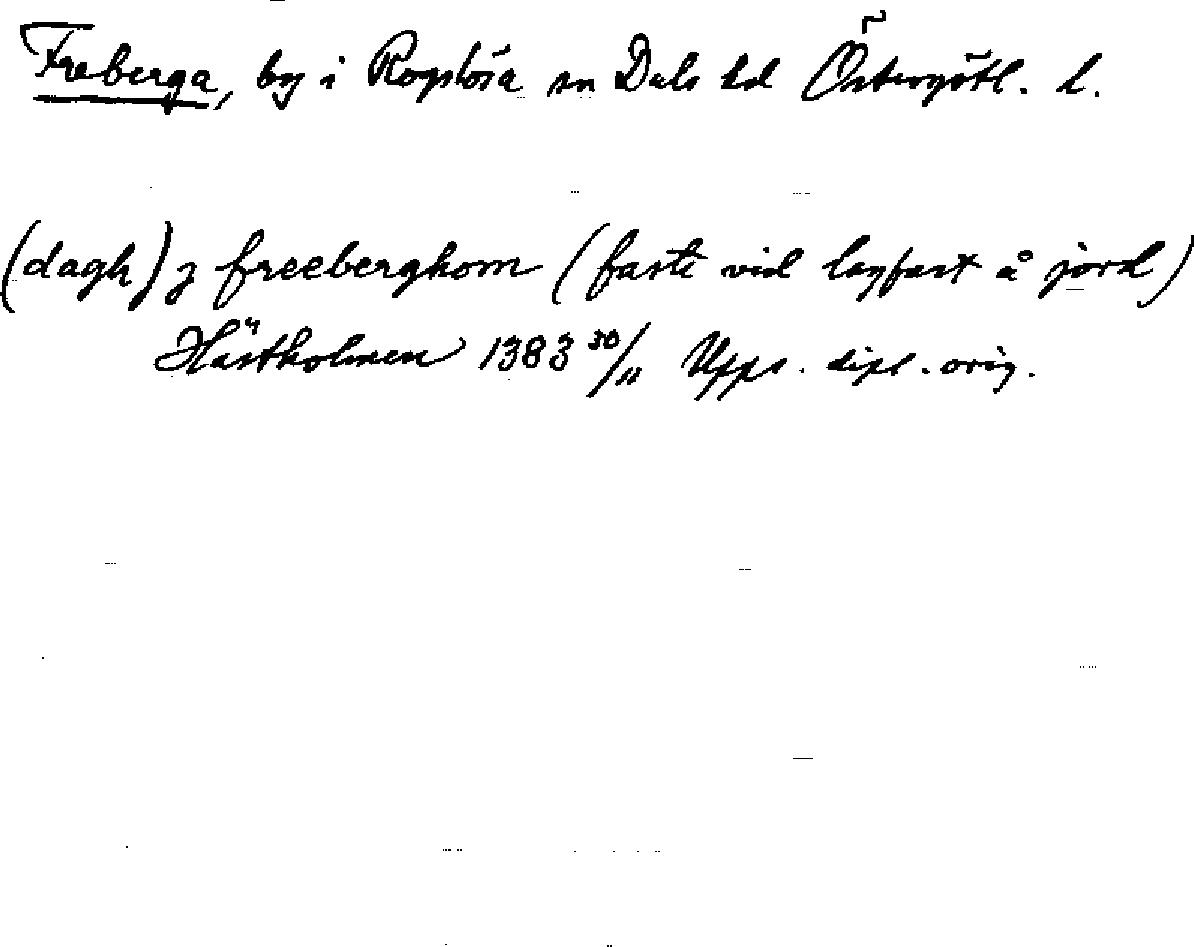 Freberga, by i Rogslösa sn Dals hd Östergötl. l.
(dagh) j freeberghom (faste vid lagfart å jord)
Hästholmen 1383 30/11 Upps. dipl. orig.